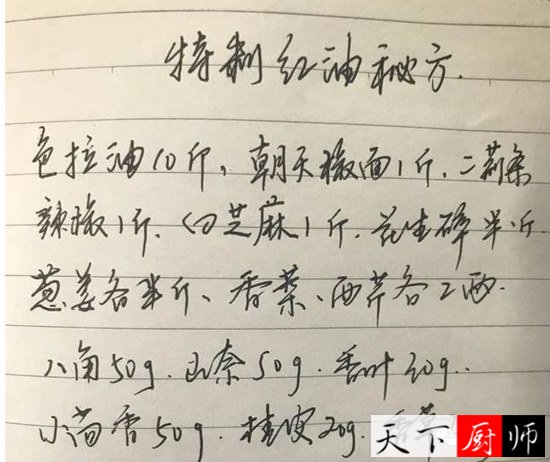 特制红油秘方.
色拉油10斤, 朝天椒面1斤. 二荆条
辣椒1斤. 白芝麻1斤. 花生碎半斤
葱姜各半斤、香菜、西芹各2两.
八角50g. 山奈50g. 香叶20g..
小茴香50g. 桂皮20g.
天下厨师